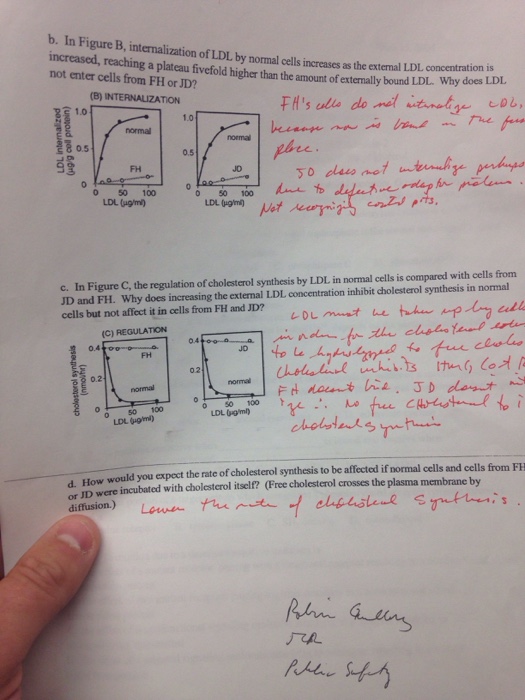 b. In Figure B, internalization of LDL by normal cells increases as the external LDL concentration is
increased, reaching a plateau fivefold higher than the amount of externally bound LDL. Why does LDL
not enter cells from FH or JD?
(B) INTERNALIZATION
LDL internalized
(µg/g cell protein)
1.0
0.5
0
normal
FH
0 50 100
LDL (µg/ml)
1.0
0.5
0
normal
JD
0 50 100
LDL (µg/ml)
FH's cells do not internalize LDL,
because is in the
place.
JD does not internalize perhaps
due to defective adaptor proteins.
Not recognizing coated pits.
c. In Figure C, the regulation of cholesterol synthesis by LDL in normal cells is compared with cells from
JD and FH. Why does increasing the external LDL concentration inhibit cholesterol synthesis in normal
cells but not affect it in cells from FH and JD?
(C) REGULATION
cholesterol synthesis
(nmol/hr)
0.4
0.2
0
FH
normal
0 50 100
LDL (µg/ml)
0.4
0.2
0
JD
normal
0 50 100
LDL (µg/ml)
LDL must be taken up by cells
in order for the cholesterol
to be hydrolyzed to free
Cholesterol inhibits
FH doesn't bind. JD doesn't
∴ no free cholesterol to i
cholesterol synthesis
d. How would you expect the rate of cholesterol synthesis to be affected if normal cells and cells from FH
or JD were incubated with cholesterol itself? (Free cholesterol crosses the plasma membrane by
diffusion.)
Lower the rate of cholesterol synthesis.
Robin
Public Safety